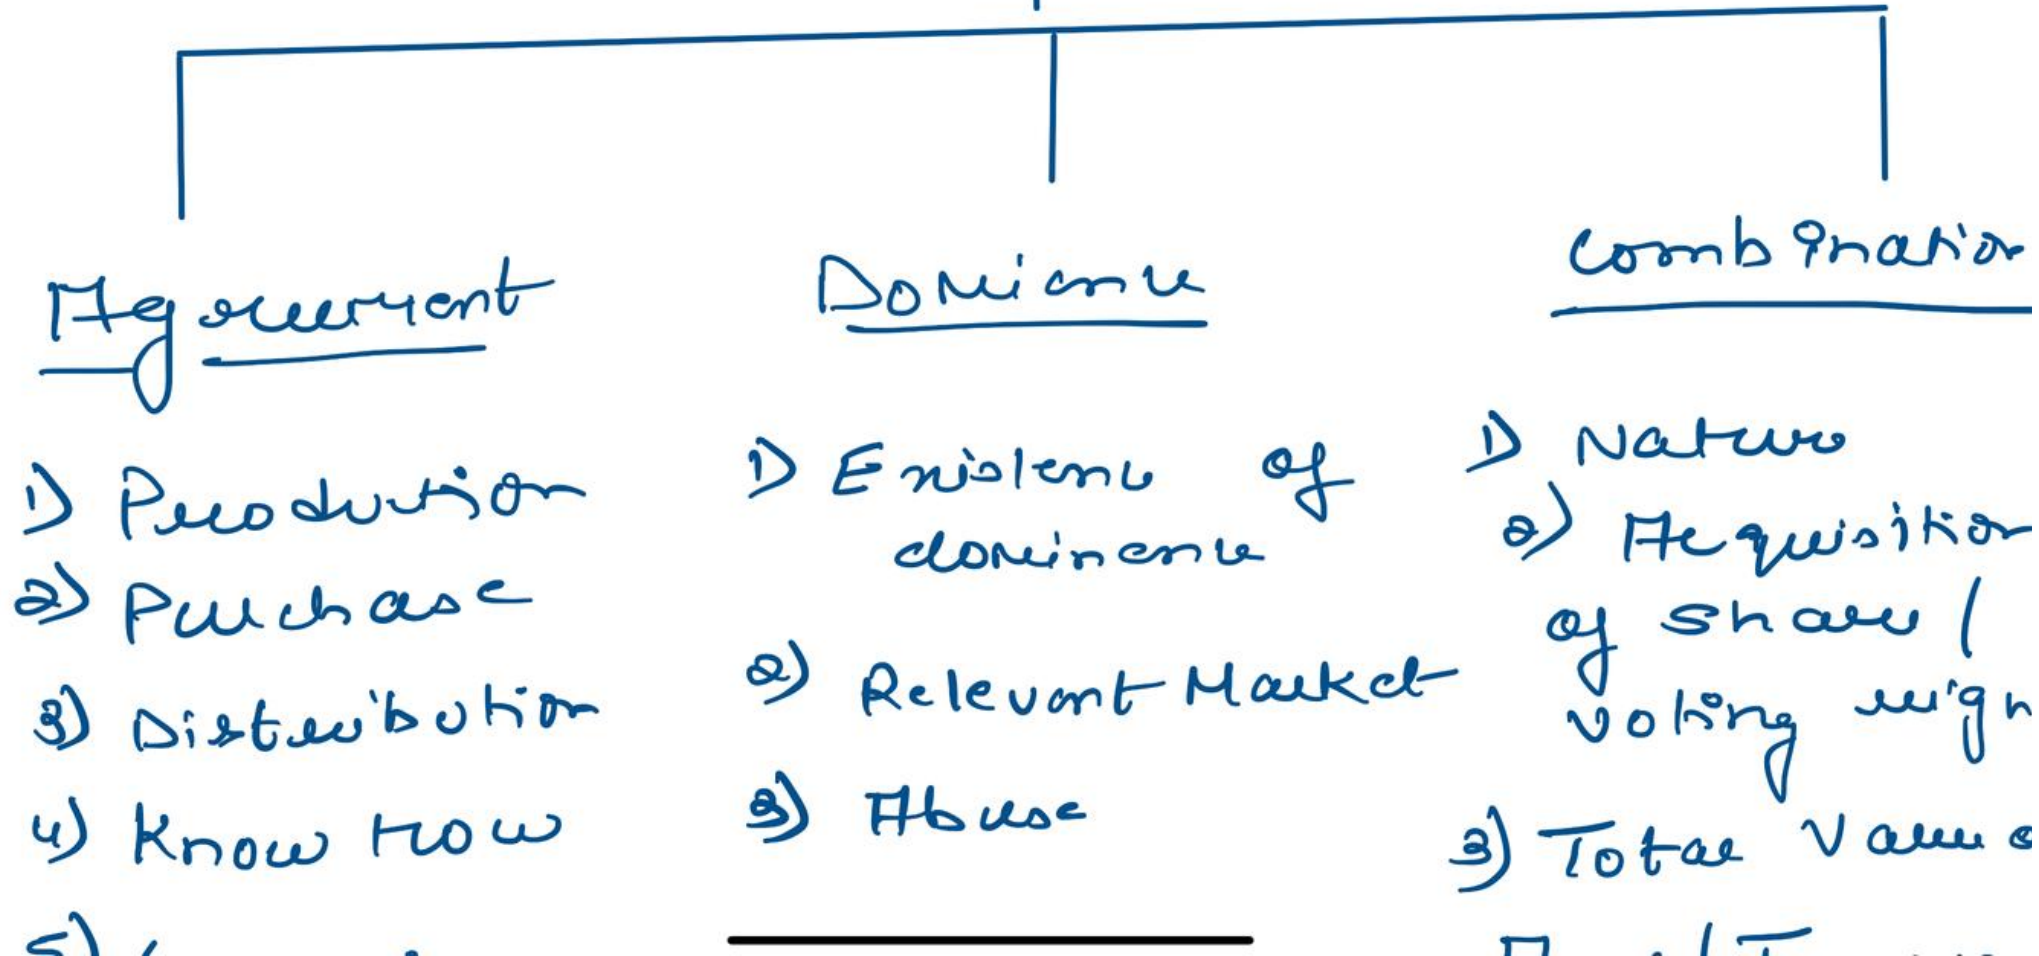 Agreement
1) Production
2) Purchase
3) Distribution
4) Know How
5)
Dominance
1) Existence of
dominence
2) Relevant Market
3) Abuse
Combination
1) Nature
2) Acquisition
of share /
voting righ
3) Total Value o